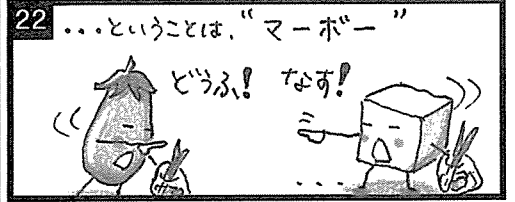 22
・・・ということは、“マーボー”
どうふ！ なす！
・・・